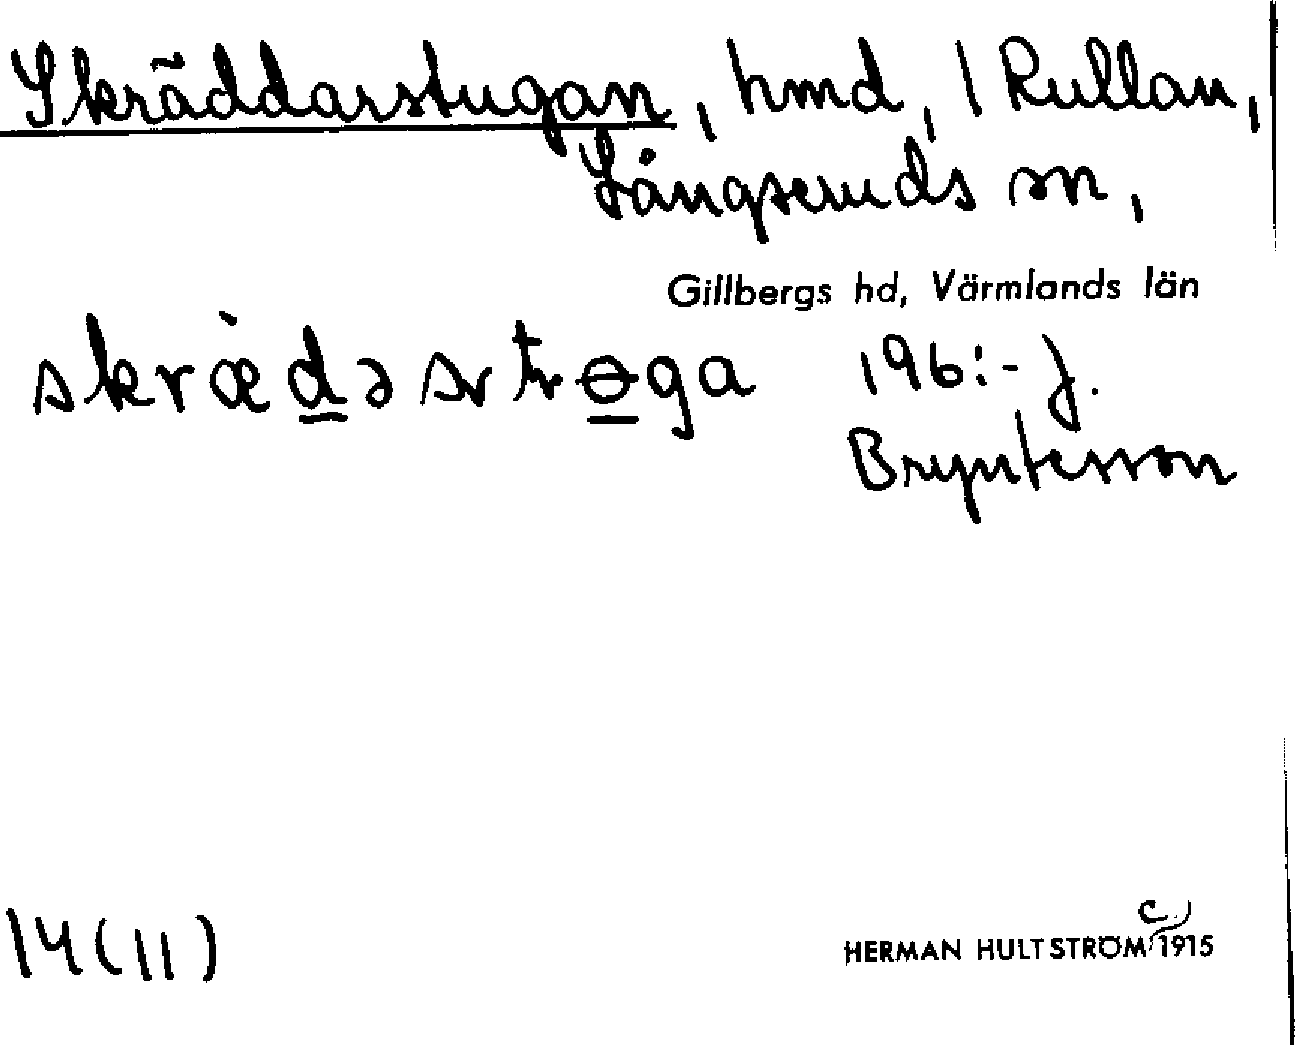 Skräddarstugan, hmd, 1 Rullan,
Långseruds sn,
Gillbergs hd, Värmlands län
skræ̀dəstɵga 196:- J.
Bryntesson
14(11)
HERMAN HULTSTRÖM c. 1915